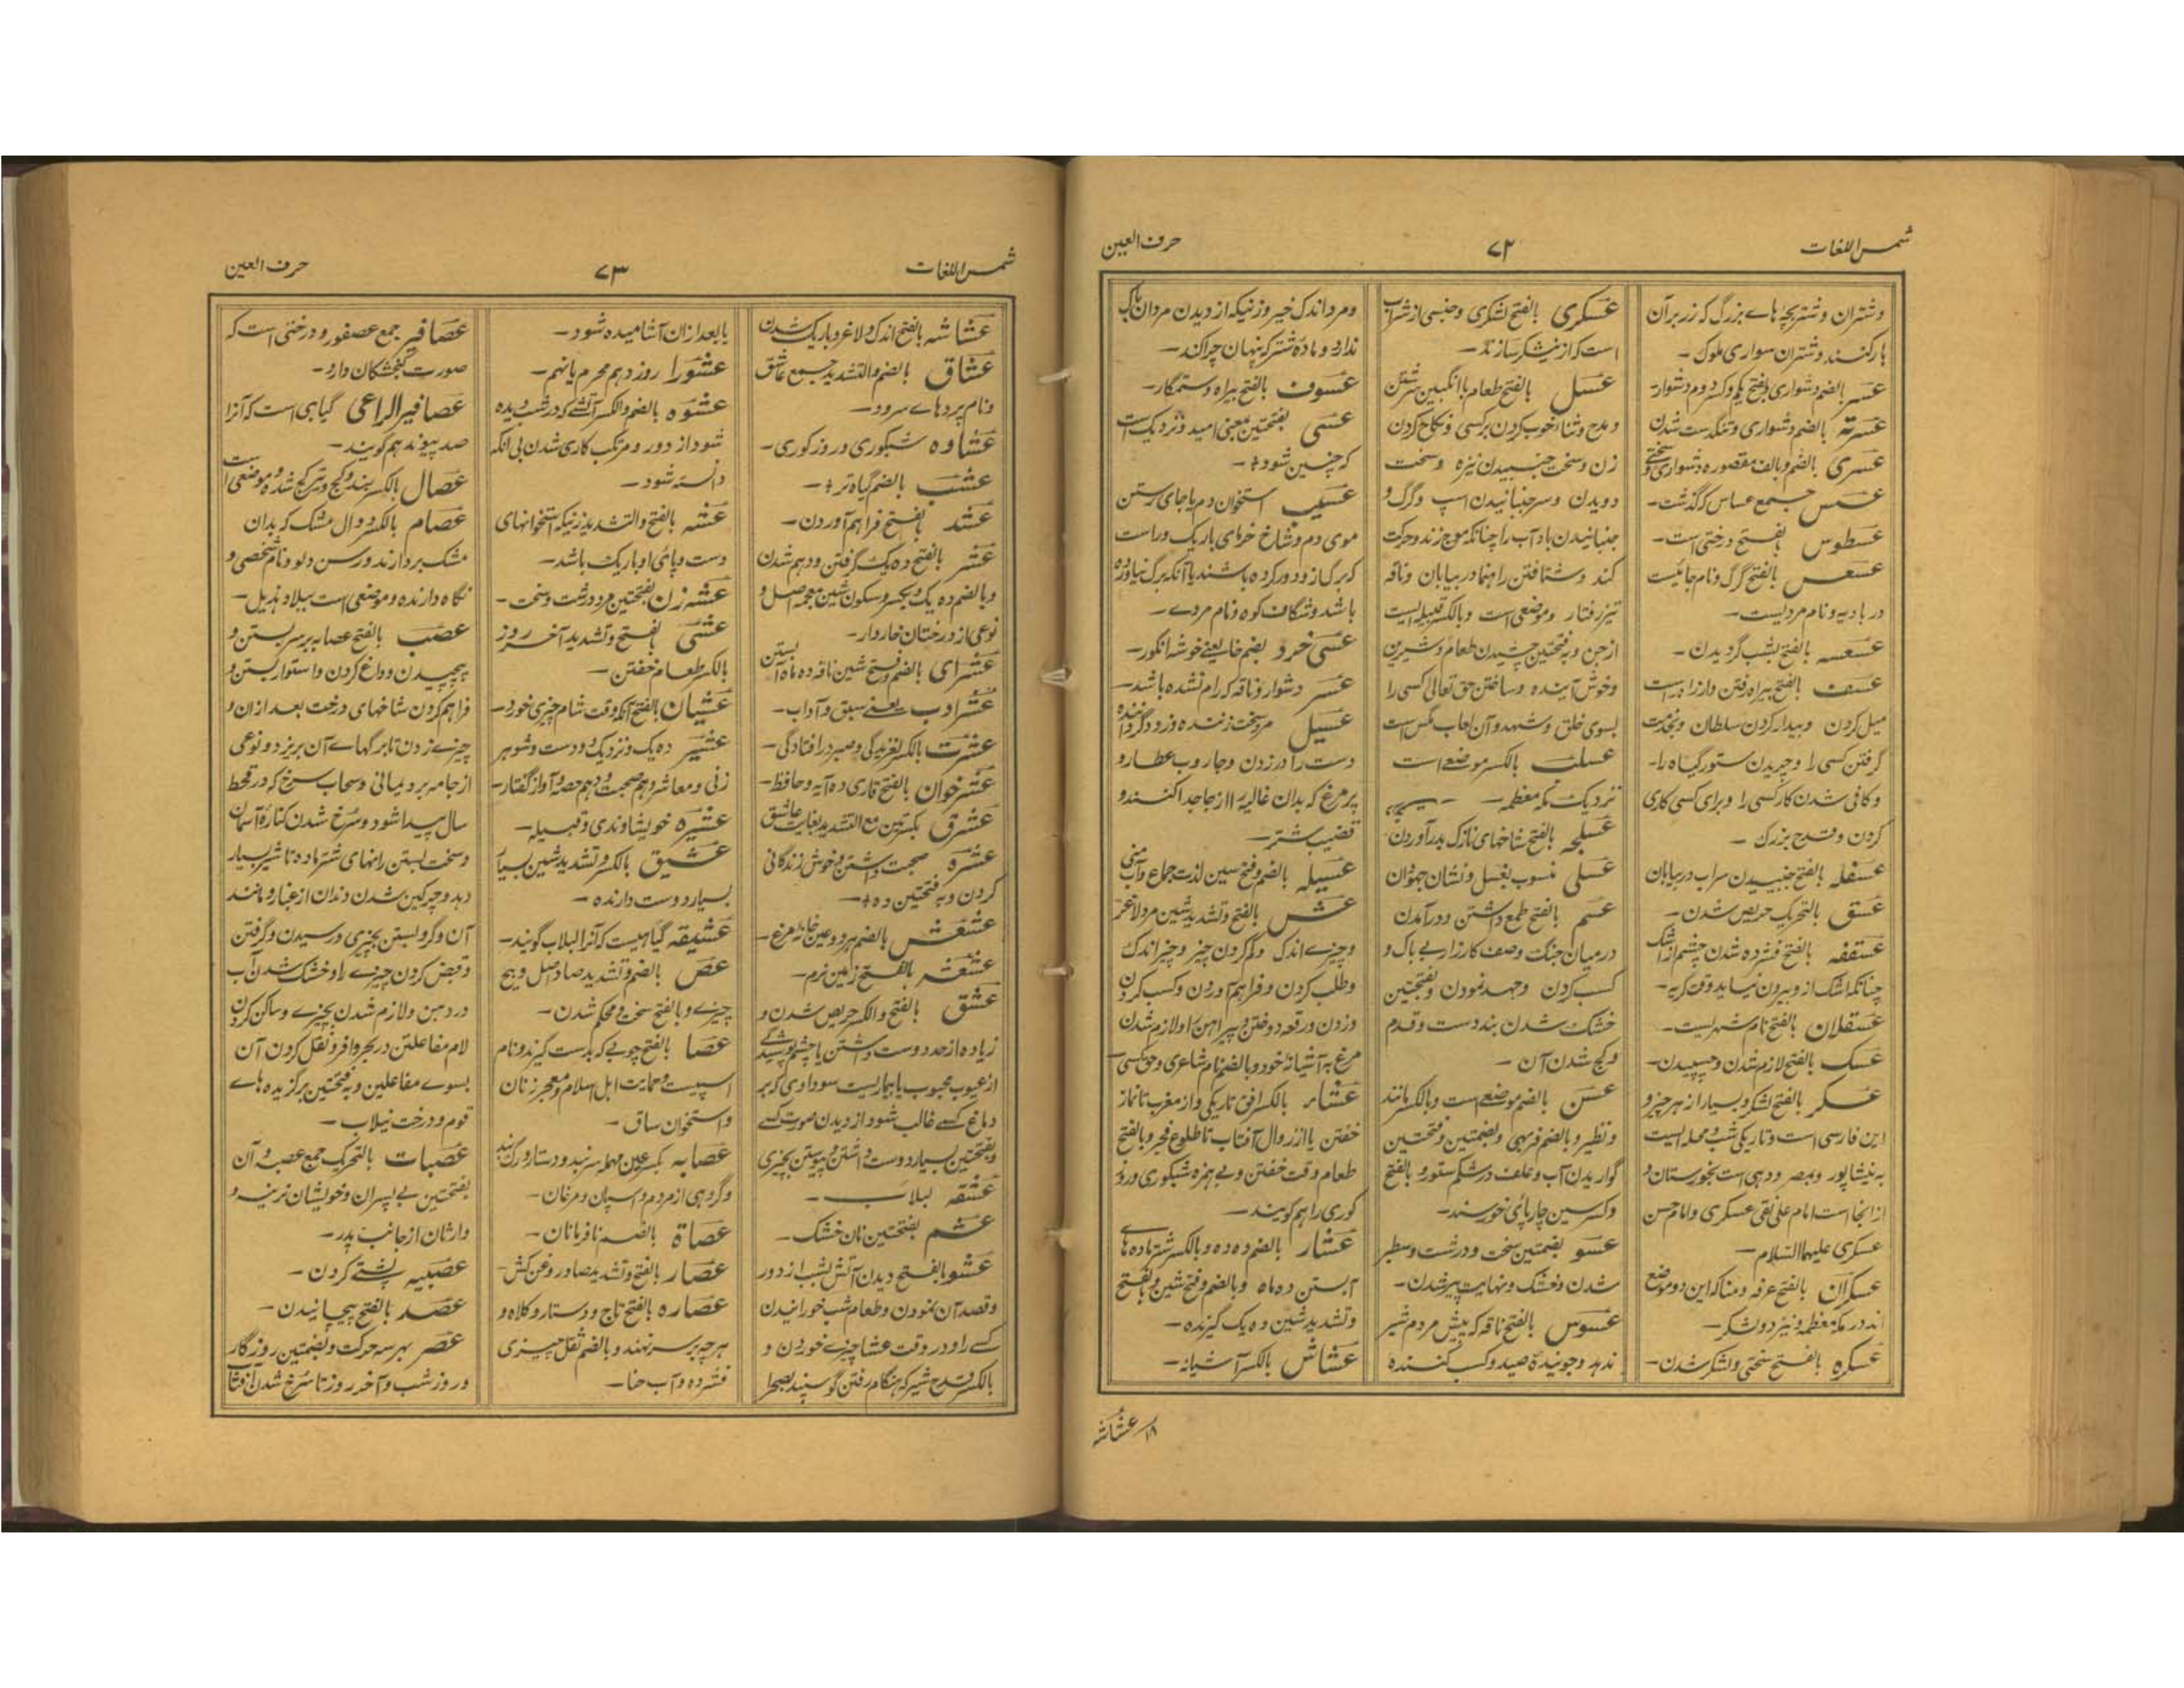 شمس اللغات
۷۲
حرف العین
وشتران وشتربچه هاے بزرگ که زر برآن
بار کنند وشتران سواری ملوک -
عسر بالضم دشواری وبفتح یکم وکسر دوم دشوار-
عسرة بالضم دشواری وتنگدست شدن
عسری بالضم وبالف مقصوره دشواری وسختی
عسس جمع عساس که گذشت-
عسطوس بفتح درختی است-
عسعس بالفتح گرگ ونام جائیست
در بادیه ونام مردیست-
عسعسه بالفتح بشب گردیدن -
عسف بالفتح بیراه رفتن وازراه
میل کردن وبیدار کردن سلطان وبخدمت
گرفتن کسی را وچریدن ستور گیاه را-
وکافی شدن کار کسی را وبرای کسی کاری
کردن وقدح بزرگ -
عسقله بالفتح جنبیدن سراب دربیابان
عسق بالتحریک حریص شدن-
عسقفه بالفتح فشرده شدن چشم از اشک
چنانکه اشک از وبیرون نیاید وقت گریه-
عسقلان بالفتح نام شهریست-
عسک بالفتح لازم شدن وچسپیدن-
عسکر بالفتح لشکر وبسیار از هر چیز و
این فارسی است وتاریکی شب ومحله ایست
به نیشاپور وبمصر ودهی است بخورستان و
ازانجا است امام علی نقی عسکری وامام حسن
عسکری علیهما السلام-
عسکران بالفتح عرفه ومنا که این دو موضع
اند در مکه معظمه ونیز دو لشکر-
عسکره بالفتح سختی ولشکر شدن-
عسکری بالفتح لشکری وجنسی از شراب
است که از نیشکر سازند-
عسل بالفتح طعام با انگبین سرشتن
ومدح وثنا خوب کردن برکسی ونکاح کردن
زن وسخت جنبیدن نیزه وسخت
دویدن وسر جنبانیدن اسپ وگرگ و
جنبانیدن باد آب را چنانکه موج زند وحرکت
کند وشتافتن راهنما در بیابان وناقه
تیز رفتار وموضعی است وبالکسر قبیله ایست
از جن وبفتحتین چشیدن طعام وشیرین
وخوش آینده وساختن حق تعالی کسی را
بسوی خلق وشهد وآن لعاب مگس است
بالکسر موضعے است
نزدیک مکه معظمه-
عسلجه بالفتح شاخهای نازک بدر آوردن
عسلی منسوب بعسل ونشان جهودان
عسم بالفتح طمع داشتن ودر آمدن
درمیان جنگ وصف کارزار بے باک و
کسب کردن وجهد نمودن وبفتحتین
خشک شدن بند دست وقدم
وکج شدن آن -
عسن بالضم موضعے است وبالکسر مانند
ونظیر وبالضم فربهی وبضمتین وفتحتین
گواریدن آب وعلف درشکم ستور وبالفتح
وکسر سین چارپائی خورسند-
عسو بضمتین سخت ودرشت وسطبر
شدن وخشک ونهایت پیر شدن-
عسوس بالفتح ناقه که پیش مردم شیر
ندهد وجوینده صید وکسب کننده
ومرد اندک خیر وزنیکه از دیدن مردان باک
ندارد وماده شتر که پنهان چرا کند-
عسوف بالفتح بیراه وستمگار-
عسی بفتحتین بمعنی امید ونزدیک است
که چنین شود-
عسیب استخوان دم یا جای رستن
موی دم وشاخ خرمای باریک وراست
که برگ از ودور کرده باشند یا آنکه برگ نیاورده
باشد وشگاف کوه ونام مردے-
بضم خا یعنے خوشه انگور-
عسیر دشوار وناقه که رام نشده باشد-
عسیل مرد سخت زننده وزود گرداننده
دست را در زدن وجاروب عطار و
پر مرغ که بدان غالیه را از جا جدا کنند و
قضیب شتر-
عسیله بالضم وفتح سین لذت جماع وآب منی
عش بالفتح وتشدید شین مرد لاغر
وچیزے اندک وکم کردن چیز وچیز اندک
وطلب کردن وفراهم آوردن وکسب کردن
وزدن ورقعه دوختن پیراهن را ولازم شدن
مرغ به آشیانه خود وبالضم نام شاعری
عشاء بالکسر افق تاریکی واز مغرب تا نماز
خفتن یا از زوال آفتاب تا طلوع فجر وبالفتح
طعام وقت خفتن وبے بهره شبکوری وروز
کوری را هم گویند-
عشار بالضم ده ده وبالکسر شتر ماده هاے
آبستن ده ماه وبالضم وفتح شین وبفتح
وتشدید شین ده یک گیرنده-
عشاش بالکسر آشیانه-
عشاشه
شمس اللغات
۷۳
حرف العین
عشاشه بالفتح اندک ولاغر وباریک شدن
عشاق بالضم والتشدید جمع عاشق
ونام پردهاے سرود-
عشاوه شبکوری وروز کوری-
عشب بالضم گیاه تر-
عشد بالفتح فراهم آوردن-
عشر بالفتح ده یک گرفتن ودهم شدن
وبالضم ده یک وبکسر وسکون شین معجمه اصل و
نوعی از درختان خاردار-
عشرای بالضم وفتح شین ناقه ده ماه آبستن
عشر ادب یعنے سبق وآداب-
عشرت بالکسر لغزیدگی وبسر درافتادگی-
عشر خوان بالفتح قاری ده آیه وحافظ-
عشرق بکسرتین مع التشدید بغایت عاشق
عشره صحبت داشتن وخوش زندگانی
کردن وبه فتحتین ده-
عشعش بالضم هر دو عین خانه مرغ-
بالفتح زمین نرم-
عشق بالفتح والکسر حریص شدن و
زیاده از حد دوست داشتن یا چشم پوشیدگے
از عیوب محبوب یا بیماریست سوداوی که بر
دماغ کسے غالب شود از دیدن صورت کسے
وبفتحتین بسیار دوست داشتن وپیوستن بچیزی
عشقه لبلاب-
عشم بفتحتین نان خشک-
عشو بالفتح دیدن آتش بشب از دور
وقصد آن نمودن وطعام شب خورانیدن
کسے را ودر وقت عشا چیزے خوردن و
بالکسر قدح شیر که هنگام رفتن گوسپند بصحرا
یا بعد ازان آشامیده شود-
عشورا روز دهم محرم یا نهم-
عشوه بالضم والکسر آتشے که در شب دیده
شود از دور ومرتکب کاری شدن بی آنکه
دانسته شود-
عشه بالفتح والتشدید زنیکه استخوانهای
دست وپای او باریک باشد-
عشه زن بفتحتین مرد درشت وسخت-
عشی بفتح وتشدید آخر روز
بالکسر طعام خفتن-
عشیان بالفتح آنکه وقت شام چیزی خورد-
عشیر ده یک ونزدیک ودوست وشوهر
زنی ومعاشر وهم صحبت ودهم حصه وآواز گفتار-
عشیره خویشاوندی وقبیله-
عشیق بالکسر وتشدید شین بسیار
بسیار دوست دارنده-
عشیقه گیاهیست که آنرا لبلاب گویند-
عص بالضم وتشدید صاد اصل وبیخ
چیزے وبالفتح سخت ومحکم شدن-
عصا بالفتح چوبی که بدست گیرند ونام
اسپیست وحمایت اهل اسلام ومعجر زنان
واستخوان ساق-
عصابه بکسر عین مهمله سربند ودستار
وگروهی از مردم واسپان ومرغان-
عصاة بالضم نافرمانان-
عصار بالفتح وتشدید صاد روغن کش-
عصاره بالفتح تاج ودستار وکلاه و
هرچه برسر نهند وبالضم ثقل چیزی
فشرده وآب حنا-
عصافیر جمع عصفور ودرختی است که
صورت گنجشکان دارد-
عصافیر الراعی گیاهی است که آنرا
صد پیوند هم گویند-
عصال بالکسر بند وکج وتیر کج شده وموضعی است
عصام بالکسر دوال مشک که بدان
مشک بردارند ورسن دلو ونام شخصی و
نگاه دارنده وموضعی است ببلاد هذیل-
عصب بالفتح عصابه برسر بستن و
پیچیدن وواغ کردن واستوار بستن و
فراهم کردن شاخهای درخت بعد ازان و
چیزے زدن تا برگهاے آن بریزد ونوعی
از جامه برد یمانی وسحاب سرخ که در قحط
سال پیدا شود وسرخ شدن کناره آسمان
وسخت بستن رانهای شتر ماده تا شیر بسیار
دهد وچرکین شدن دندان از غبار ومانند
آن وگرد بستن بچیزی ورسیدن وگرفتن
وقبض کردن چیزے را وخشک شدن آب
در دهن ولازم شدن بچیزے وساکن کردن
لام مفاعلتن در بحر وافر ونقل کردن آن
بسوے مفاعیلن وبه فتحتین برگزیده هاے
قوم ودرخت نیلاب-
عصبات بالتحریک جمع عصبه وآن
بفتحتین بے پسران وخویشان نرینه و
وارثان از جانب پدر-
عصبیه پشتے کردن-
عصد بالفتح پیچانیدن-
عصر بهر سه حرکت وبضمتین روزگار
وروز شب وآخر روز تا سرخ شدن آفتاب